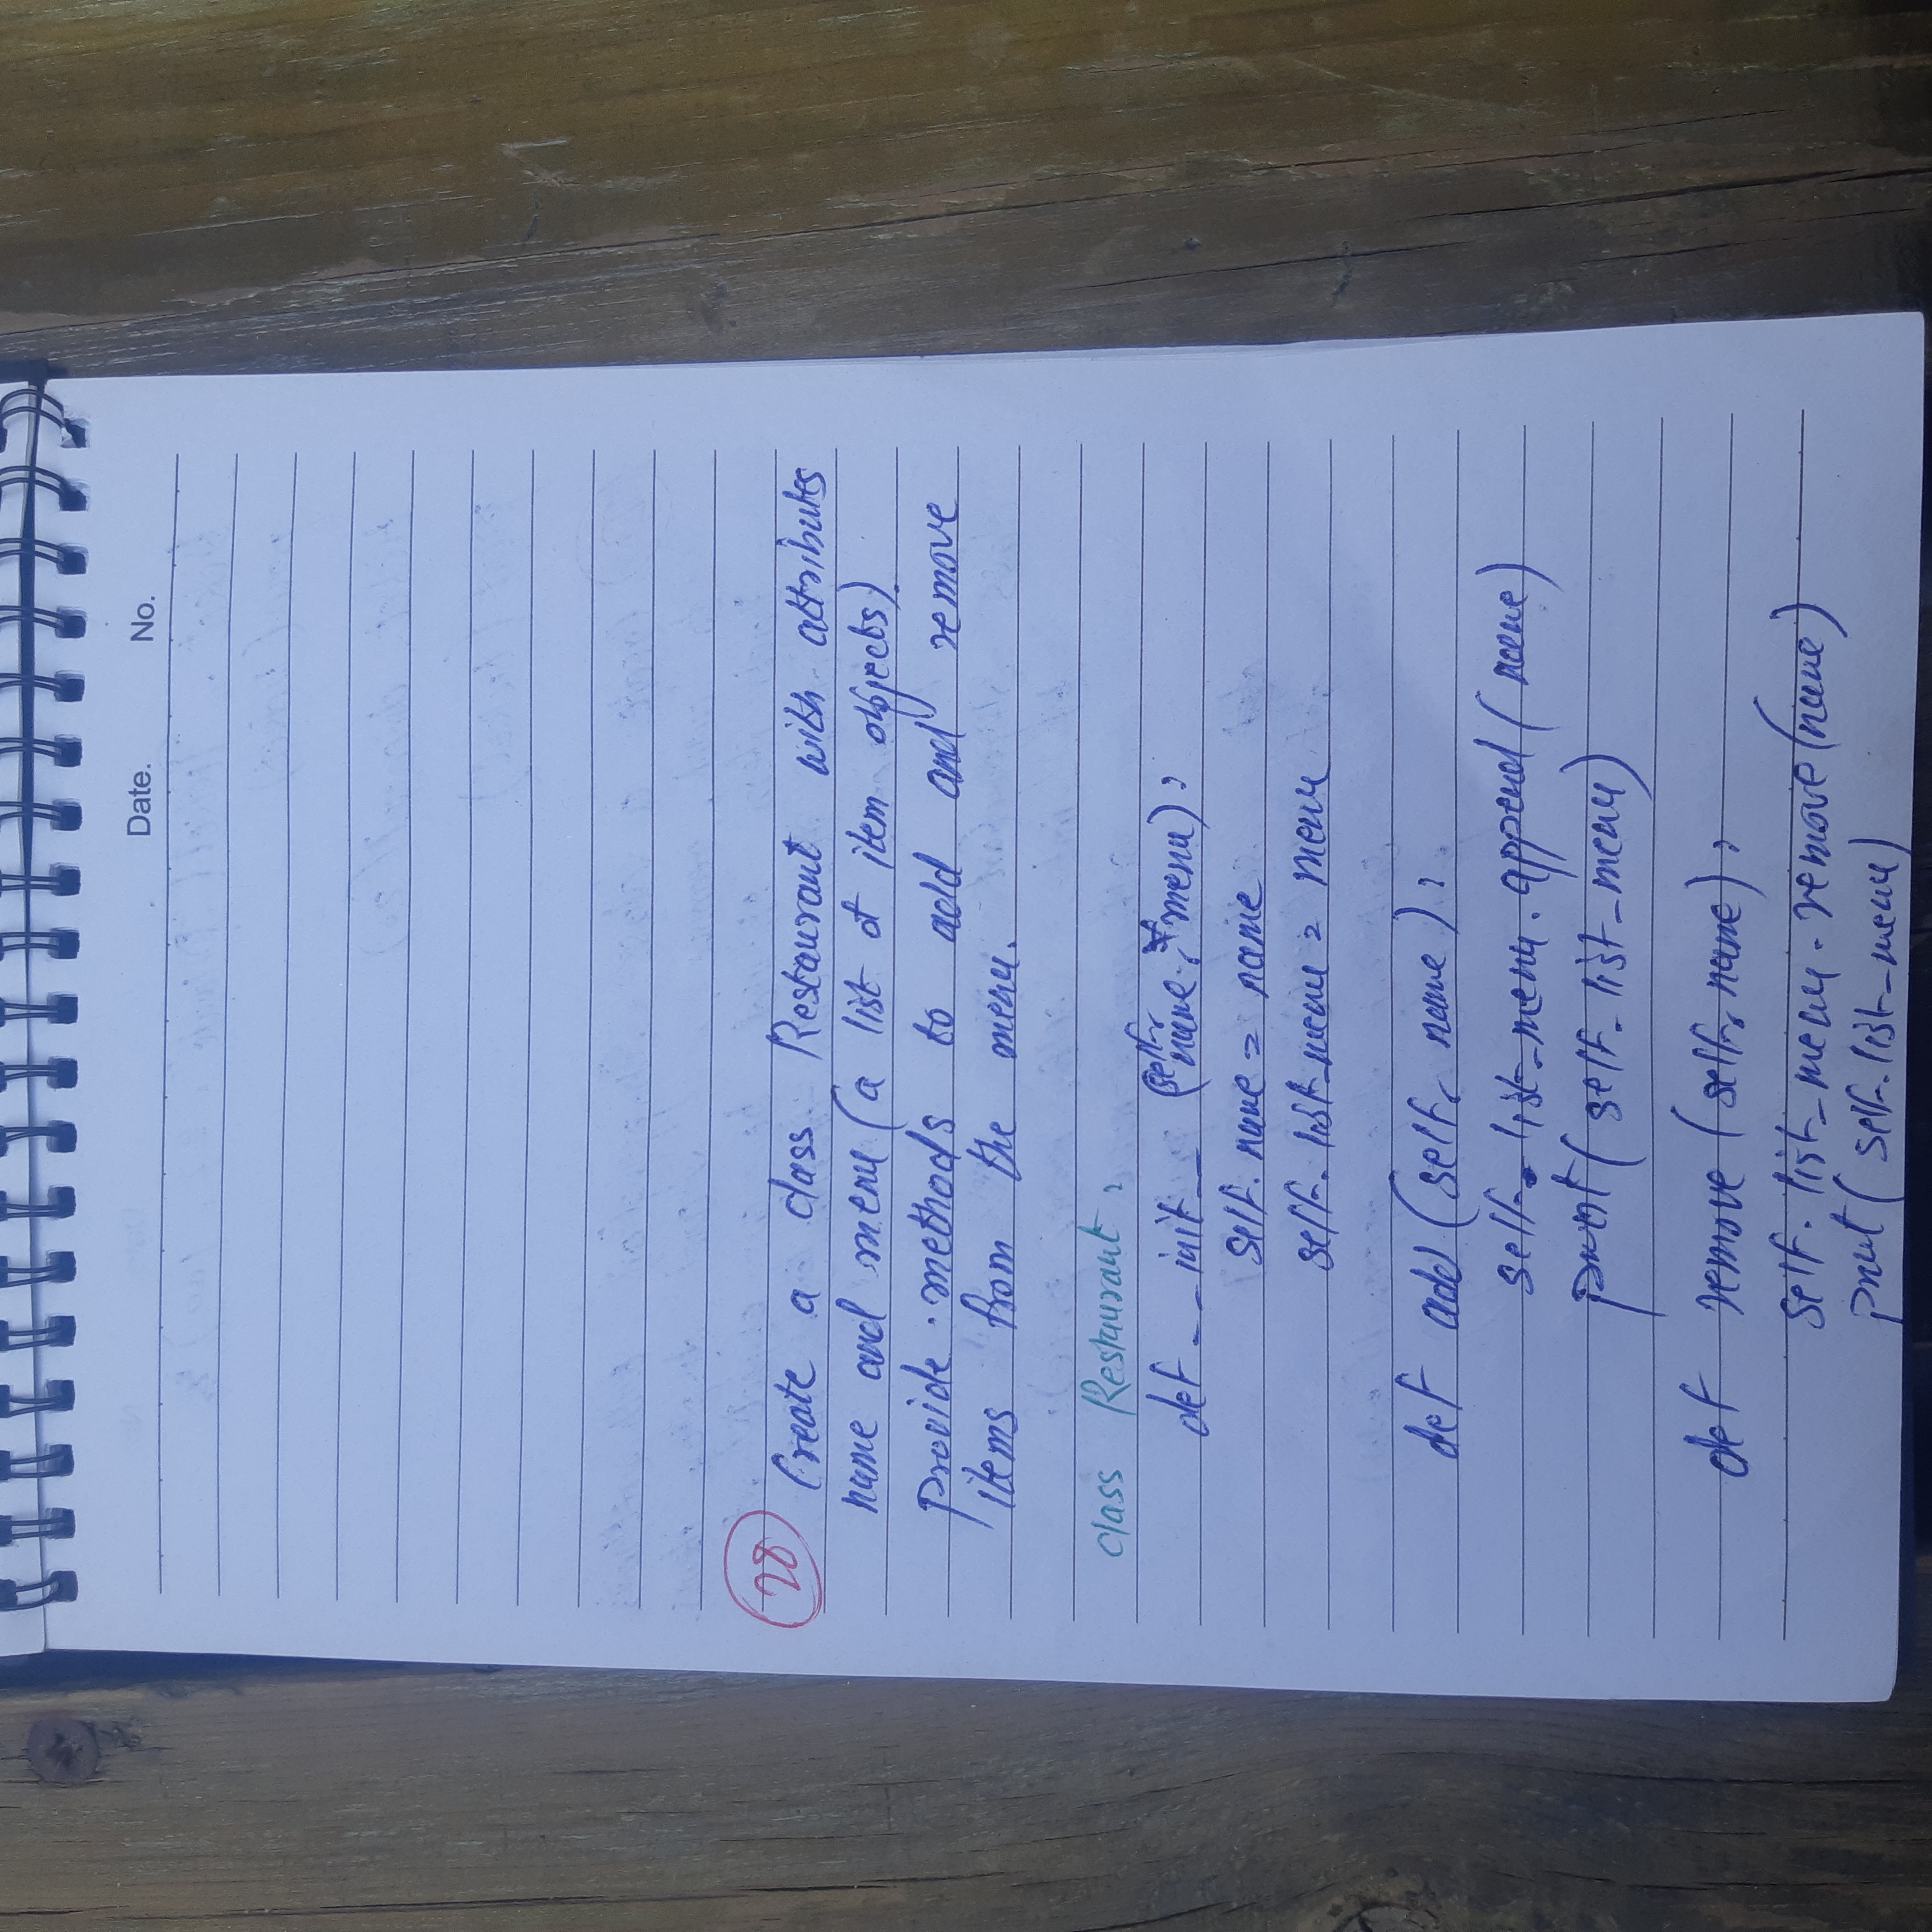 Date. No.
28 Create a class Restaurant with attributes
name and menu (a list of item objects).
Provide methods to add and remove
items from the menu.
class Restaurant:
def __init__ (self, name, *menu):
self.name = name
self.list_menu = menu
def add (self, name):
self.list_menu.append(name)
print(self.list_menu)
def remove (self, name):
self.list_menu.remove(name)
print(self.list_menu)